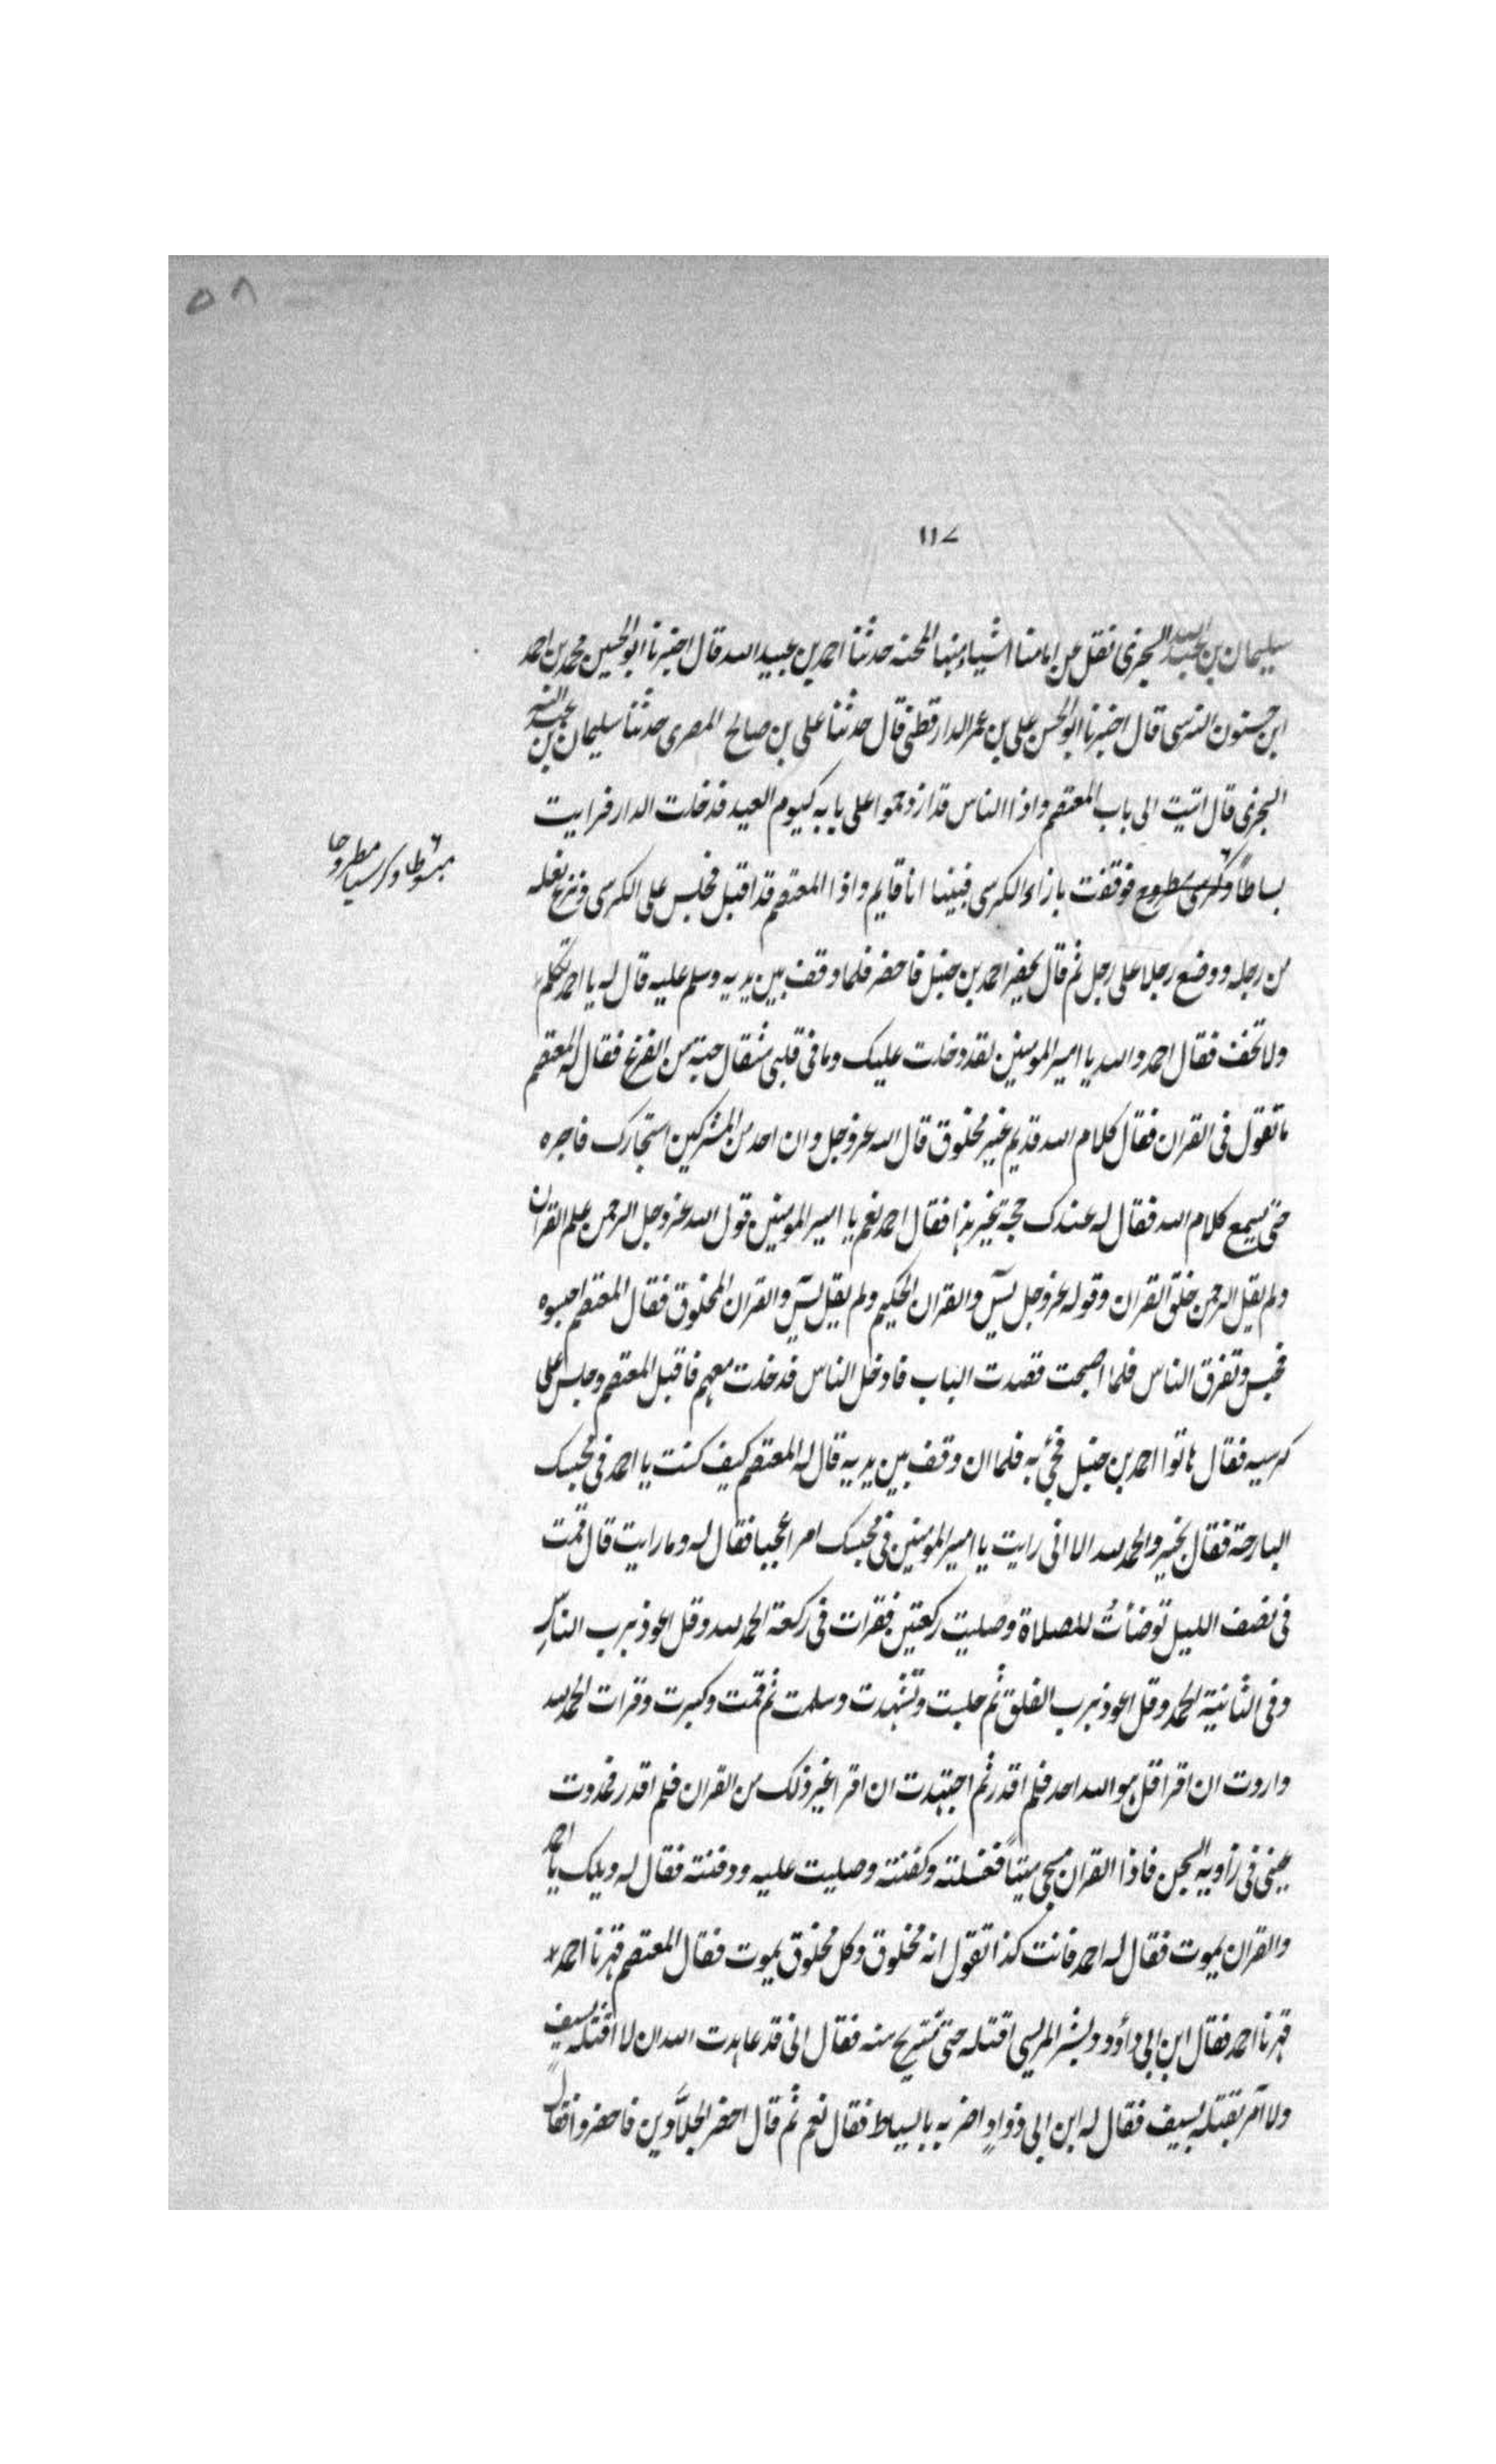 ٥٨
١١٧
سليمان بن عبد الله السجزى نقل عن امامنا اشياء منها المحنه حدثنا احمد بن عبيد الله قال اخبرنا ابو الحسين محمد بن احمد
ابن حسنون النرسى قال اخبرنا ابو الحسن على بن عمر الدارقطنى قال حدثنا على بن صالح المصرى حدثنا سليمان بن عبد الله
السجزى قال اتيت الى باب المعتصم واذا الناس قد ازدحموا على بابه كيوم العيد فدخلت الدار فرايت
بساطاً وكرسى مطروح فوقفت بازاء الكرسى فبينا انا قايم واذا المعتصم قد اقبل فجلس على الكرسى ونزع نعله
مبسوطا وكرسيا مطروحا
من رجله ووضع رجلا على رجل ثم قال يحضر احمد بن حنبل فاحضر فلما وقف بين يديه وسلم عليه قال له يا احمد تكلم
ولا تخف فقال احمد والله يا امير المومنين لقد دخلت عليك وما فى قلبى مثقال حبة من الفزع فقال له المعتصم
ما تقول فى القران فقال كلام الله قديم غير مخلوق قال الله عز وجل وان احد من المشركين استجارك فاجره
حتى يسمع كلام الله فقال له عندك حجة غير هذا فقال احمد نعم يا امير المومنين قول الله عز وجل الرحمن علم القران
ولم يقل الرحمن خلق القران وقوله عز وجل يسٓ والقران الحكيم ولم يقل يسٓ والقران المخلوق فقال المعتصم احبسوه
فحبس وتفرق الناس فلما اصبحت قصدت الباب فادخل الناس فدخلت معهم فاقبل المعتصم وجلس على
كرسيه فقال هاتوا احمد بن حنبل فجئ به فلما ان وقف بين يديه قال له المعتصم كيف كنت يا احمد فى محبسك
البارحة فقال بخير والحمد لله الا انى رايت يا امير المومنين فى محبسك امرا عجيبا فقال له وما رايت قال قمت
فى نصف الليل توضأت للصلاة وصليت ركعتين فقرات فى ركعة الحمد لله وقل اعوذ برب الناس
وفى الثانية الحمد وقل اعوذ برب الفلق ثم جلست وتشهدت وسلمت ثم قمت وكبرت وقرات الحمد لله
واردت ان اقرا قل هو الله احد فلم اقدر ثم اجتهدت ان اقرا غير ذلك من القران فلم اقدر فمددت
عينى فى زاوية السجن فاذا القران مسجى ميتاً فغسلته وكفنته وصليت عليه ودفنته فقال له ويلك يا احمد
والقران يموت فقال له احمد فانت كذا تقول انه مخلوق وكل مخلوق يموت فقال المعتصم قهرنا احمد
قهرنا احمد فقال ابن ابى داؤد وبشر المريسى اقتله حتى نستريح منه فقال انى قد عاهدت الله ان لا اقتله بسيف
ولا آمر بقتله بسيف فقال له ابن ابى دواد اضربه بالسياط فقال نعم ثم قال احضر الجلادين فاحضروا فقال